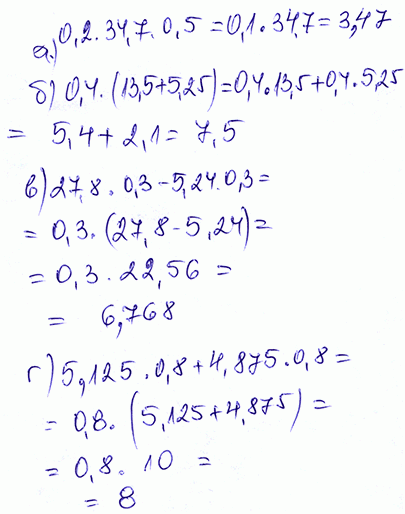 а) 0,2 · 34,7 · 0,5 = 0,1 · 34,7 = 3,47
б) 0,4 · (13,5+5,25) = 0,4 · 13,5 + 0,4 · 5,25
= 5,4 + 2,1 = 7,5
в) 27,8 · 0,3 - 5,24 · 0,3 =
= 0,3 · (27,8 - 5,24) =
= 0,3 · 22,56 =
= 6,768
г) 5,125 · 0,8 + 4,875 · 0,8 =
= 0,8 · (5,125 + 4,875) =
= 0,8 · 10 =
= 8